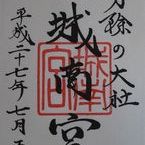 方除の大社
城南宮
平成二十七年七月